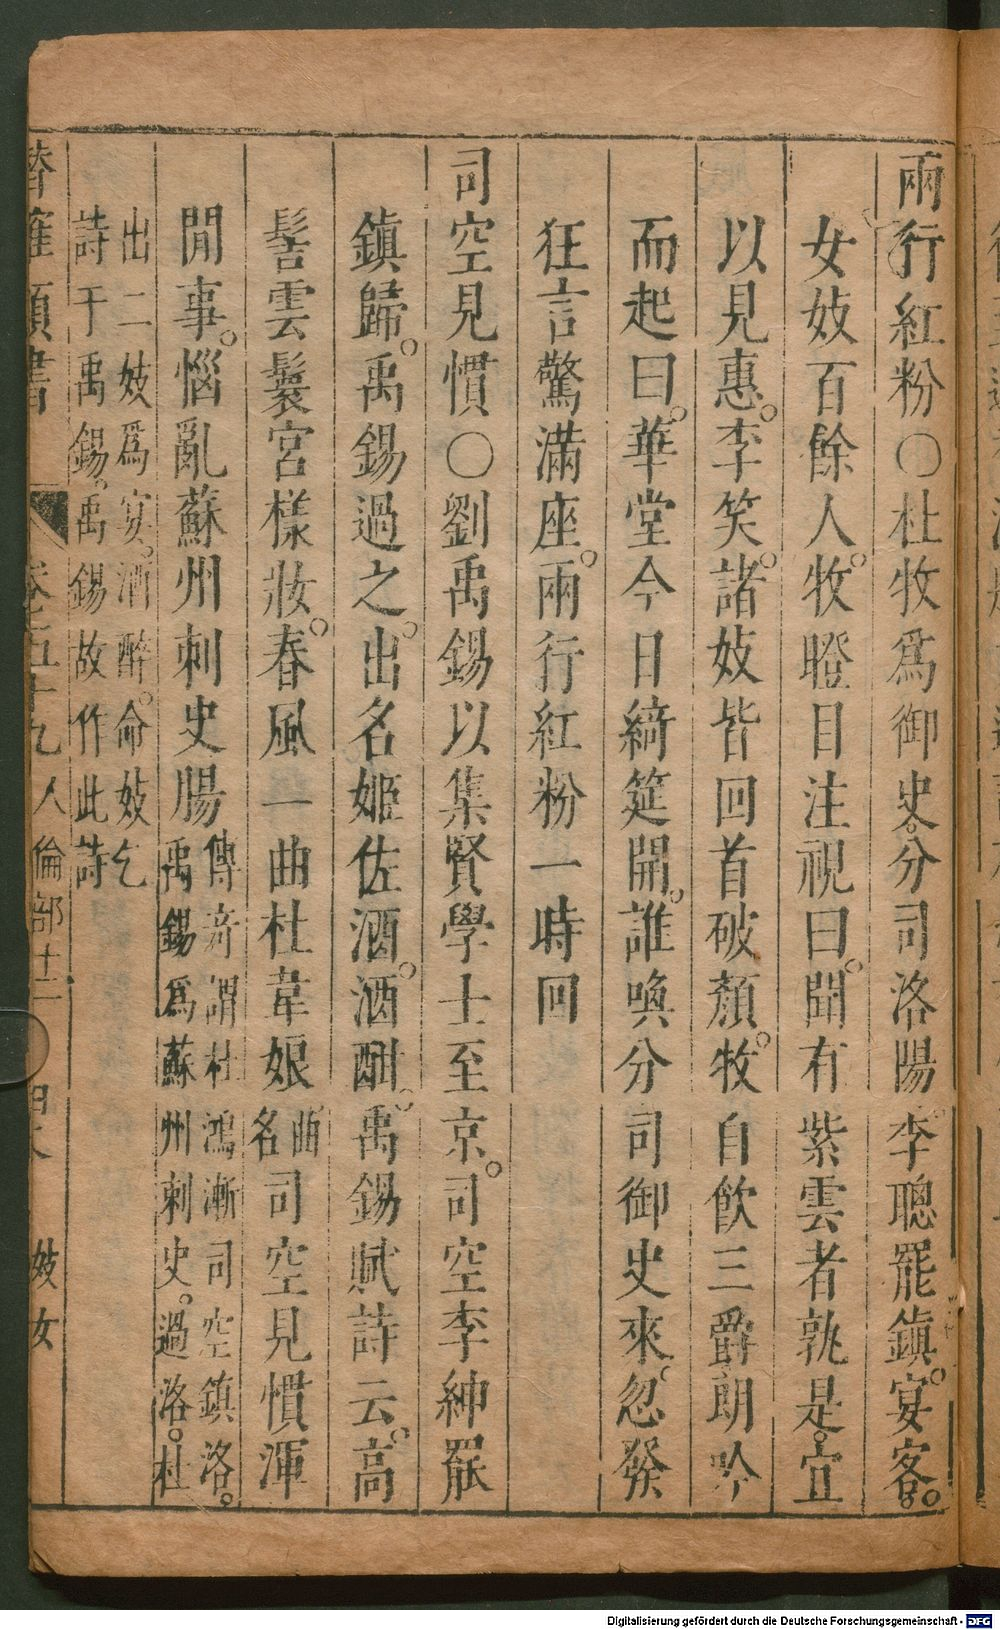 兩行紅粉〇杜牧爲御史。分司洛陽李聰罷鎮。宴客。
女妓百餘人。牧瞪目注視曰。聞有紫雲者孰是。宜
以見惠。李笑。諸妓皆回首破顏。牧自飲三爵朗吟
而起曰。華堂今日綺筵開。誰喚分司御史來。忽發
狂言驚滿座。兩行紅粉一時回
司空見慣〇劉禹錫以集賢學士至京。司空李紳罷
鎮歸。禹錫過之。出名姬佐酒。酒酣。禹錫賦詩云。高
髻雲鬟宮樣妝。春風一曲杜韋娘曲名司空見慣渾
閒事。惱亂蘇州刺史腸傳奇謂杜鴻漸司空鎮洛。
禹錫爲蘇州刺史。過洛。杜
出二妓爲宴。酒醉。命妓乞
詩于禹錫。禹錫故作此詩
卷五十九 人倫部十二 妓女
Digitalisierung gefördert durch die Deutsche Forschungsgemeinschaft - DFG